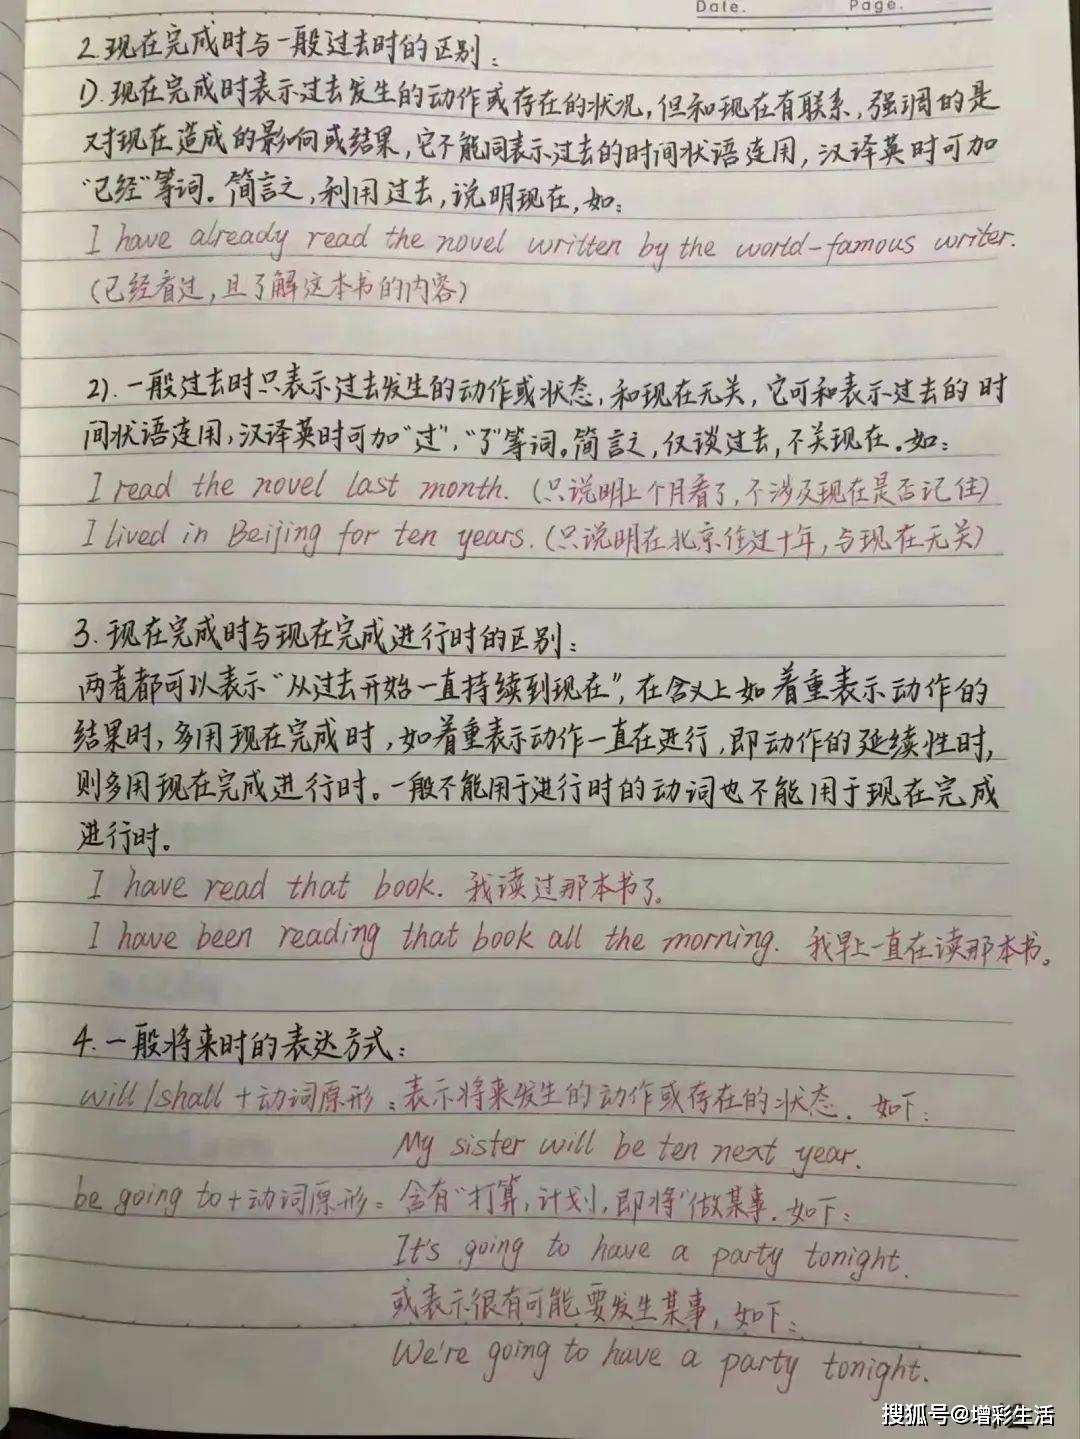 Date.
Page.
2.现在完成时与一般过去时的区别：
1).现在完成时表示过去发生的动作或存在的状况,但和现在有联系,强调的是
对现在造成的影响或结果,它不能同表示过去的时间状语连用,汉译英时可加
"已经"等词。简言之,利用过去,说明现在,如:
I have already read the novel written by the world-famous writer.
(已经看过,且了解这本书的内容)
2).一般过去时只表示过去发生的动作或状态,和现在无关,它可和表示过去的时
间状语连用,汉译英时可加"过","了"等词。简言之,仅谈过去,不关现在.如:
I read the novel last month. (只说明上个月看了,不涉及现在是否记住)
I lived in Beijing for ten years. (只说明在北京住过十年,与现在无关)
3.现在完成时与现在完成进行时的区别:
两者都可以表示"从过去开始一直持续到现在",在含义上如着重表示动作的
结果时,多用现在完成时,如着重表示动作一直在进行,即动作的延续性时,
则多用现在完成进行时。一般不能用于进行时的动词也不能用于现在完成
进行时。
I have read that book. 我读过那本书了。
I have been reading that book all the morning. 我早上一直在读那本书。
4.一般将来时的表达方式:
will/shall+动词原形:表示将来发生的动作或存在的状态.如下:
My sister will be ten next year.
be going to+动词原形:含有"打算,计划,即将"做某事.如下:
It's going to have a party tonight.
或表示很有可能要发生某事,如下:
We're going to have a party tonight.
搜狐号@增彩生活